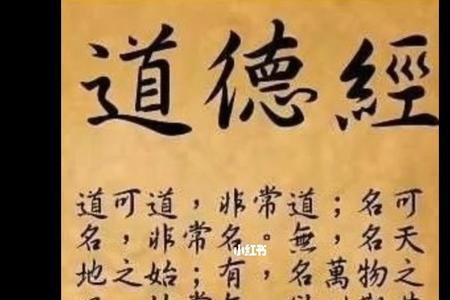 道德經
道可道，非常道；名可
名，非常名。無，名天
小红书
地之始；有，名萬物之